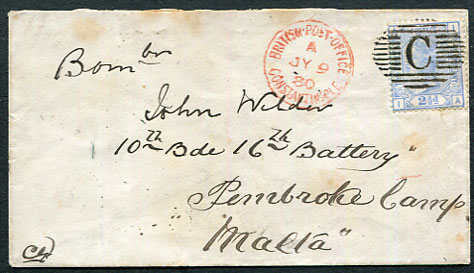 BRITISH · POST · OFFICE
A
JY 9
80
CONSTANTINOPLE
C
I
I 2½d A
Bombr
John Wilder
10th Bde 16th Battery"
Pembroke Camp
"Malta"